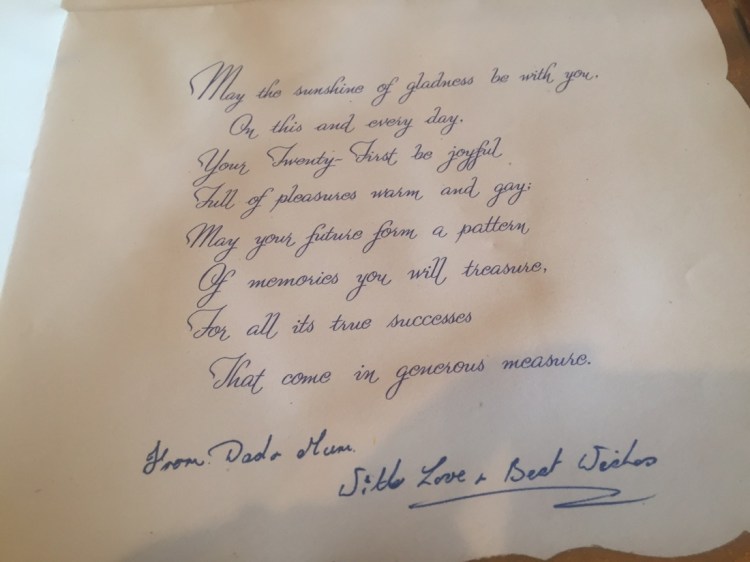 May the sunshine of gladness be with you.
On this and every day.
Your Twenty-First be joyful
Full of pleasures warm and gay:
May your future form a pattern
Of memories you will treasure,
For all its true successes
That come in generous measure.
From. Dad & Mum.
With Love & Best Wishes